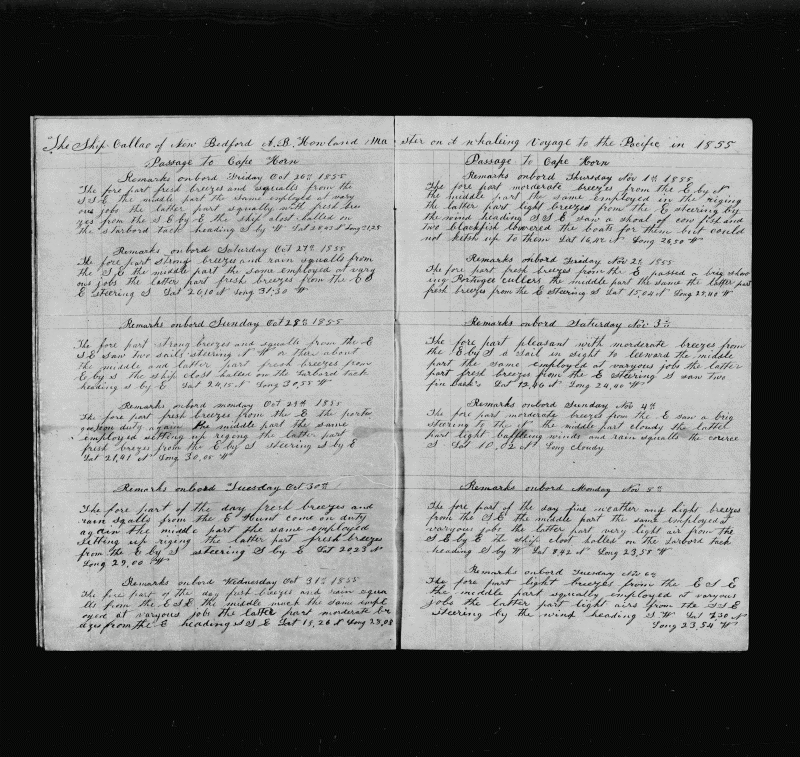 The Ship Callao of New Bedford A.B. Howland Master on it whaleing Voyage to the Pacific in 1855
Passage to Cape Horn
Remarks onbord Friday Oct 26th 1855
The fore part fresh breezes and squalls from the
S S E the middle part the same employed at vary
ous jobs the latter part squally with fresh bre
zes from the S E by E the ship clost halled on
the starbord tack heading S by W
Remarks onbord Saturday Oct 27th 1855
The fore part strong breezes and rain squalls from
the S E the middle part the same employed at vary
ous jobs the latter part fresh breezes from the E S
E steering S Lat 26,10 N Long 31,30 W
Remarks onbord Sunday Oct 28th 1855
The fore part strong breezes and squalls from the E
S E saw two sails steering N W or there about
the middle and latter part fresh breezes from
E by S the ship clost halled on the larbord tack
heading S by E Lat 24,15 N Long 30,55 W
Remarks onbord monday Oct 29th 1855
The fore part fresh breezes from the E the portu
on duty again the middle part the same
employed setting up riging the latter part
fresh brezes from the E by S steering S by E
Lat 21,41 N Long 30,08 W
Remarks onbord Tuesday Oct 30th
The fore part of the day fresh breezes and
rain sqalls from the E Hunt come on duty
again the middle part the same employed
setting up riging the latter part fresh breezes
from the E by S steering S by E Lat 20,23 N
Long 29,00 W
Remarks onbord Wednesday Oct 31st 1855
The fore part of the day fresh breezes and rain squa
lls from the E S E the middle much the same empl
oyed at varyous jobs the latter part moderate br
ezes from the E heading S S E Lat 18,26 N Long 28,08
Passage to Cape Horn
Remarks onbord Thursday Nov 1th 1855
The fore part morderate breezes from the E by N
the middle part the same employed in the riging
the latter part light breezes from the E steering by
the wind heading S S E saw a shoal of cow fish and
two blackfish lowered the boats for them but could
not ketch up to them Lat 16,42 N Long 26,50 W
Remarks onbord Friday Nov 2th 1855
The fore part fresh breezes from the E passed a brig show
ing Portugee cullers the middle part the same the latter part
fresh breezes from the E steering S Lat 15,04 N Long 25,40 W
Remarks onbord Saturday Nov 3th
The fore part pleasant with morderate breezes from
the E by S a sail in sight to leeward the middle
part the same employed at varyous jobs the latter
part fresh breezes from the E steering S saw two
fin backs Lat 12,40 N Long 24,40 W
Remarks onbord Sunday Nov 4th
The fore part morderate breezes from the E saw a brig
steering to the N the middle part cloudy the latter
part light baffleing winds and rain squalls the corse
S Lat 10,02 N Long Cloudy
Remarks onbord Monday Nov
The fore part of the day fine weather and light breezes
from the S E the middle part the same employed at
varyous jobs the latter part very light air from the
S E by E the ship clost halled on the larbord tack
heading S by W Lat 8,42 N Long 23,58 W
Remarks onbord Tuesday Nov 6th
The fore part light breezes from the E S E
the meddle part squally employed at varyous
jobs the latter part light airs from the S S E
steering by the wind heading S W Lat N
Long 23,54 W